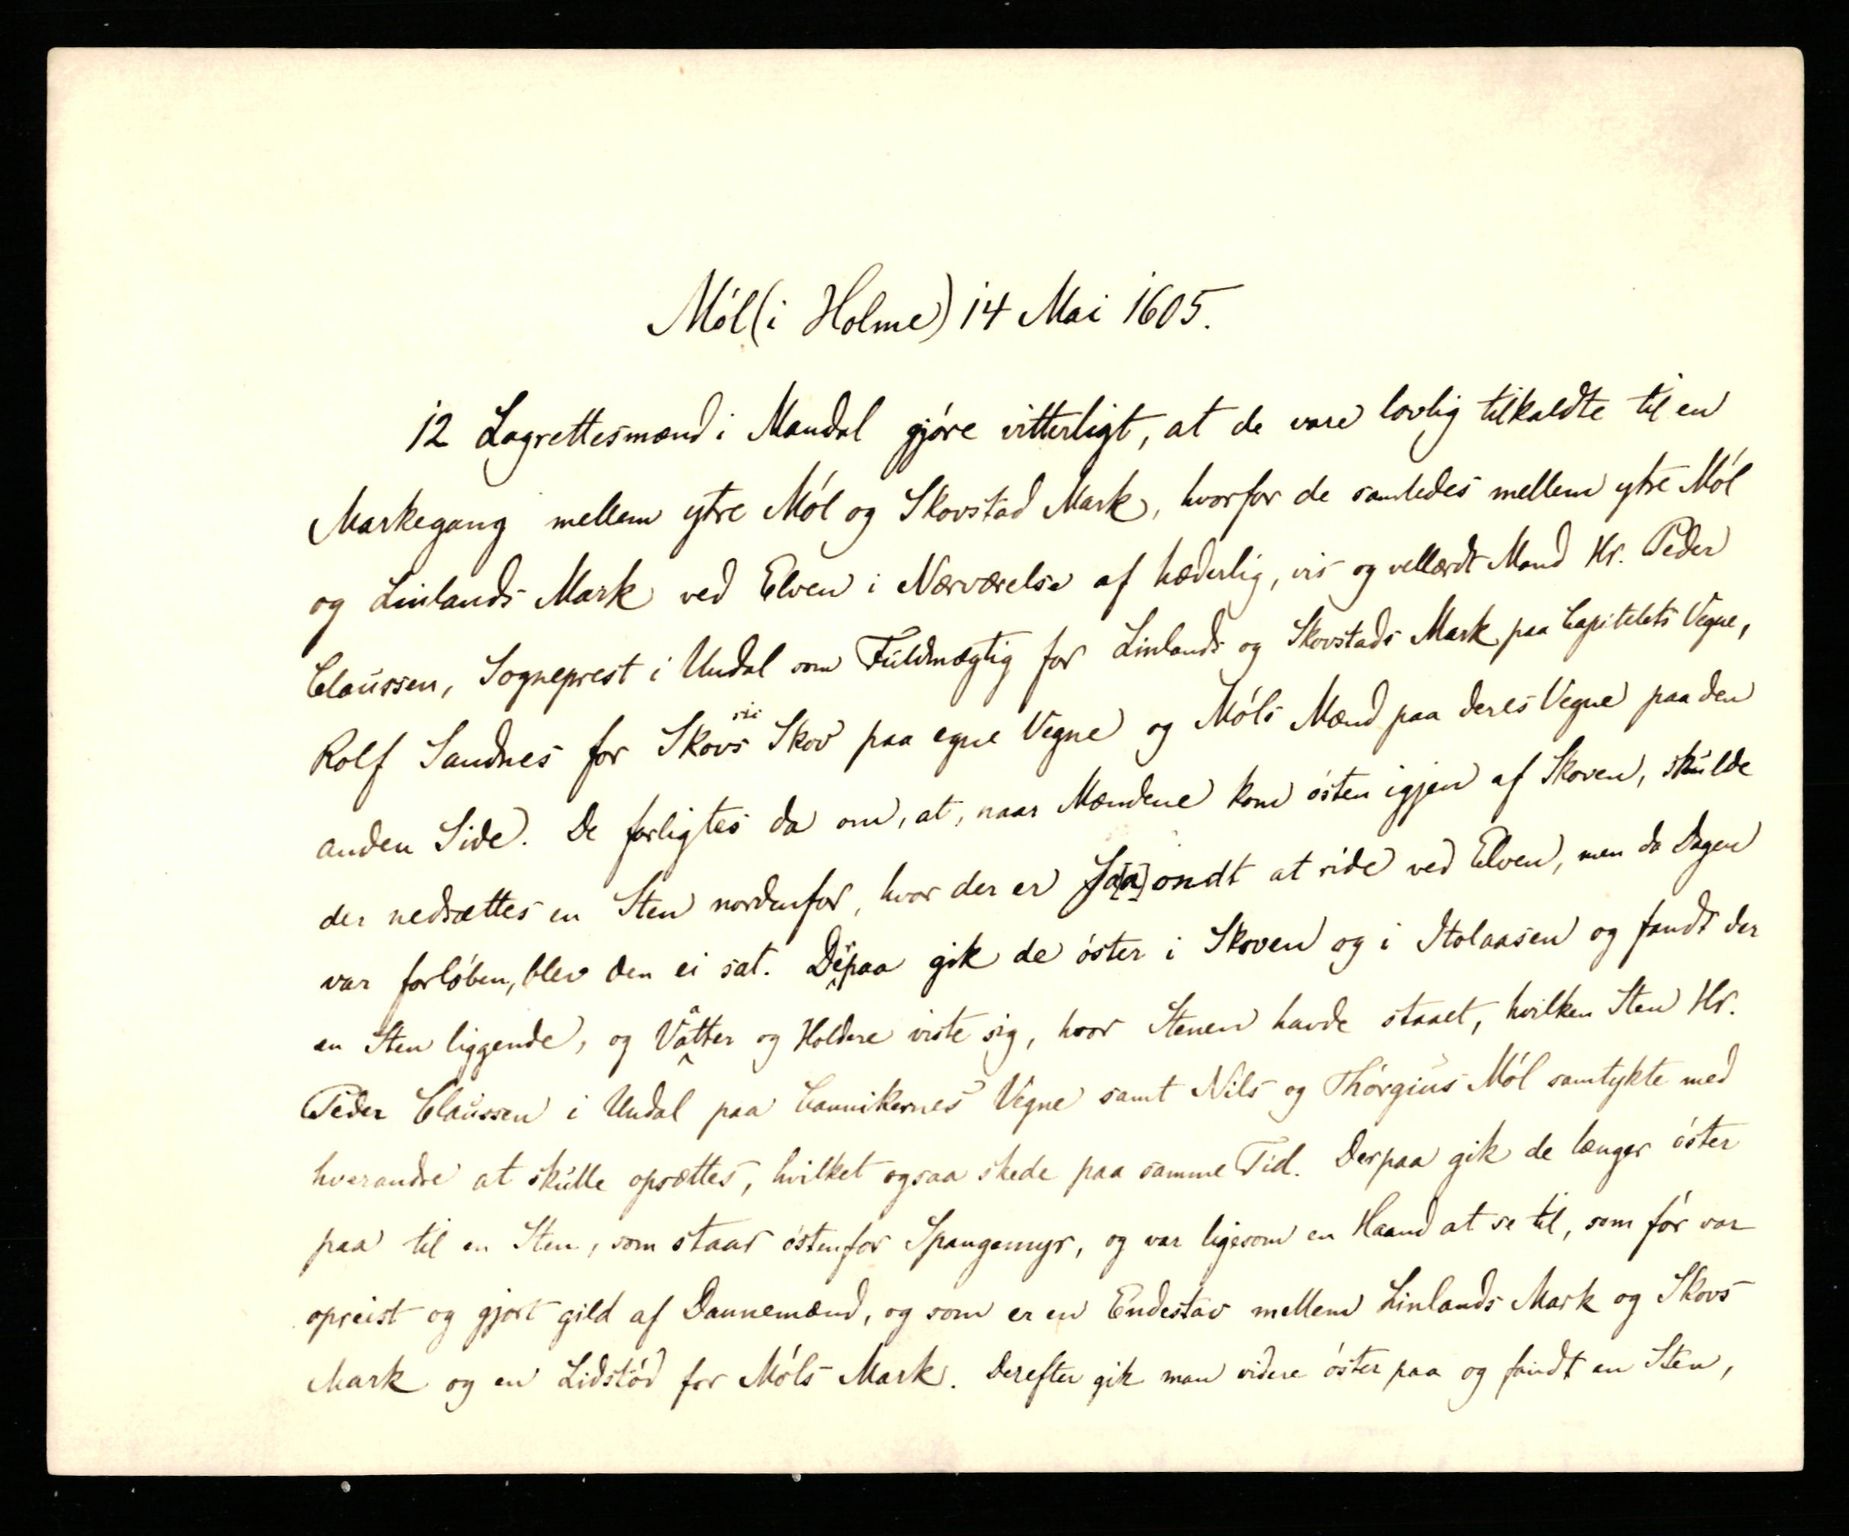 Mól (i Holme) 14 Mai 1605.
12 Lagrettesmænd i Mandal gjóre vitterligt, at de vare lovlig tilkaldte til en
Markegang mellem ytre Mól og Skovstad Mark, hvorfor de samledes mellem ytre Mól
og Linlands Mark ved Elven i Nærværelse af hæderlig, vis og vellærdt Mand Hr. Peder
Claussen, Sogneprest i Undal som Fuldmægtig for Linlands og Skovstads Mark paa Capitelets Vegne,
Rolf Sandnes for Skovs sic Skov paa egne Vegne og Móls Mænd paa deres Vegne paa den
anden Side. De forligtes da om, at, naar Mændene kom ósten igjen af Skoven, skulde
der nedsættes en Sten nordenfor, hvor der er Sa[a] ondt at ride ved Elven, men da Dagen
var forlóben, blev den ei sat. Derpaa gik de óster i Skoven og i Stolaasen og fandt der
en Sten liggende, og Vatter og Holdere viste sig, hvor Stenen havde staaet, hvilken Sten Hr.
Peder Claussen i Undal paa Cannikernes Vegne samt Nils og Thórgius Mól samtykte med
hverandre at skulle opsættes, hvilket ogsaa skede paa samme Tid. Derpaa gik de længer óster
paa til en Sten, som staar óstenfor Spangemyr, og var ligesom en Haand at se til, som fór var
opreist og gjort gild af Dannemænd, og som er en Endestav mellem Linlands Mark og Skovs
Mark og en Lidstód for Móls Mark. Derefter gik man videre óster paa og fandt en Sten,